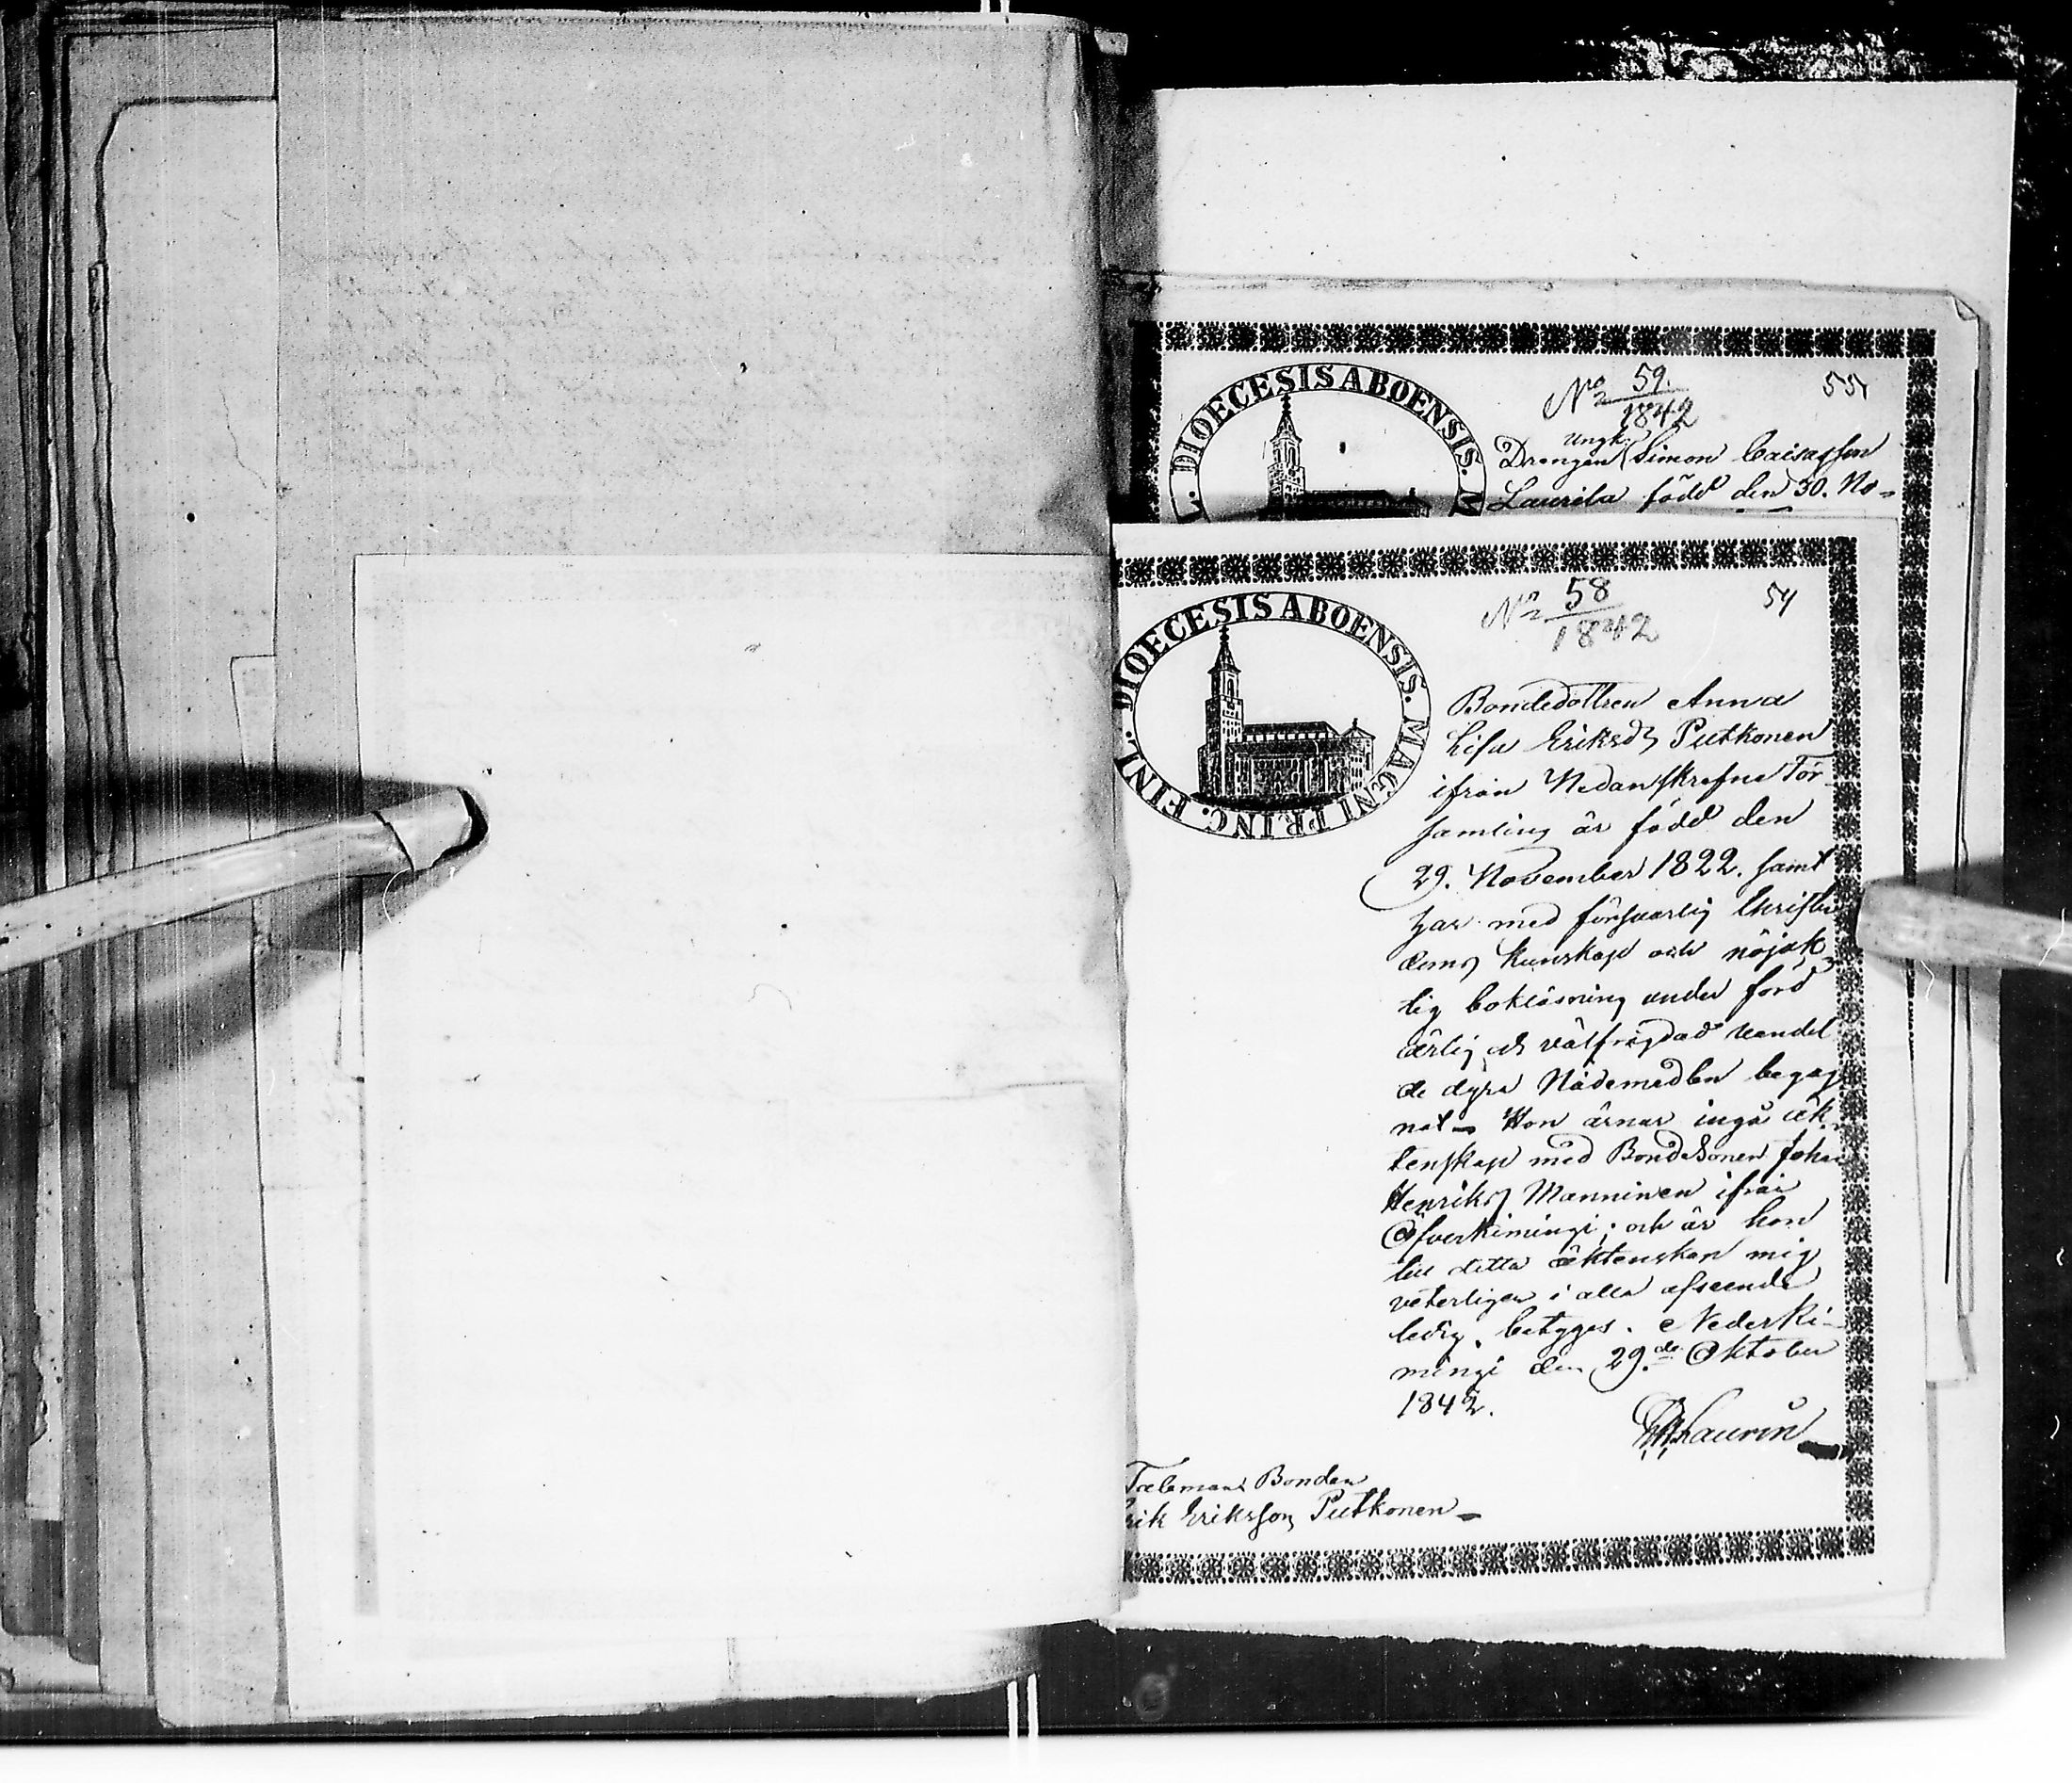 DIOECESIS ABOENSIS. M
No 59.
1842
551
Drengen Ungk. Simon
Laurila född den 30. No-
DIOECESIS ABOENSIS. MAGNI PRINC. FINL.
No 58
1842
54
Bondedottren Anna
Lisa Eriksdr Putkonen
ifrån Nedanskrefne För-
samling är född den
29. November 1822. samt
har med försvarlig Christen
doms kunskap och nöjak
lig bokläsning under förd
ärlig och välfrägdad vandel
de dyra Nådemedlen begag
nat - Hon ärnar ingå äk-
tenskap med Bondesonen Johan
Henrikss Manninen ifrån
Öfverkimingi; och är hon
till detta äktenskap mig
veterligen i alla afseende
ledig, betygas. Nederki-
mingi den 29.de Oktober
1842.
Laurin
Talemans Bonden
rik Eriksson Putkonen -